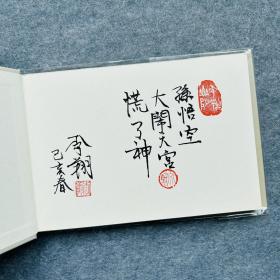 孫悟空
大鬧天宮
慌了神
李翔
己亥春